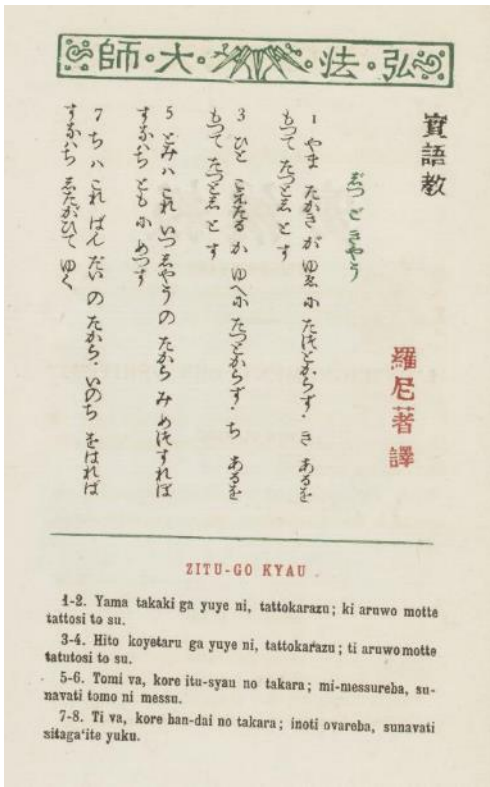 弘・法・大・師
實語教
羅尼著譯
じつ ご きやう
1 やま たかきが ゆゑに たつとからず・き あるを
もつて たつとし とす
3 ひと こえたる か ゆへに たつとからず・ち あるを
もつて たつとし とす
5 とみハ これ いつしやうの たから み めつすれば
すなハち ともに めつす
7 ちハ これ ばんだいの たから・いのち をはれば
すなハち したがひて ゆく
ZITU-GO KYAU .
1-2. Yama takaki ga yuye ni, tattokarazu; ki aruwo motte
tattosi to su.
3-4. Hito koyetaru ga yuye ni, tattokarazu; ti aruwo motte
tatutosi to su.
5-6. Tomi va, kore itu-syau no takara; mi-messureba, su-
navati tomo ni messu.
7-8. Ti va, kore ban-dai no takara; inoti ovareba, sunavati
sitaga'ite yuku.